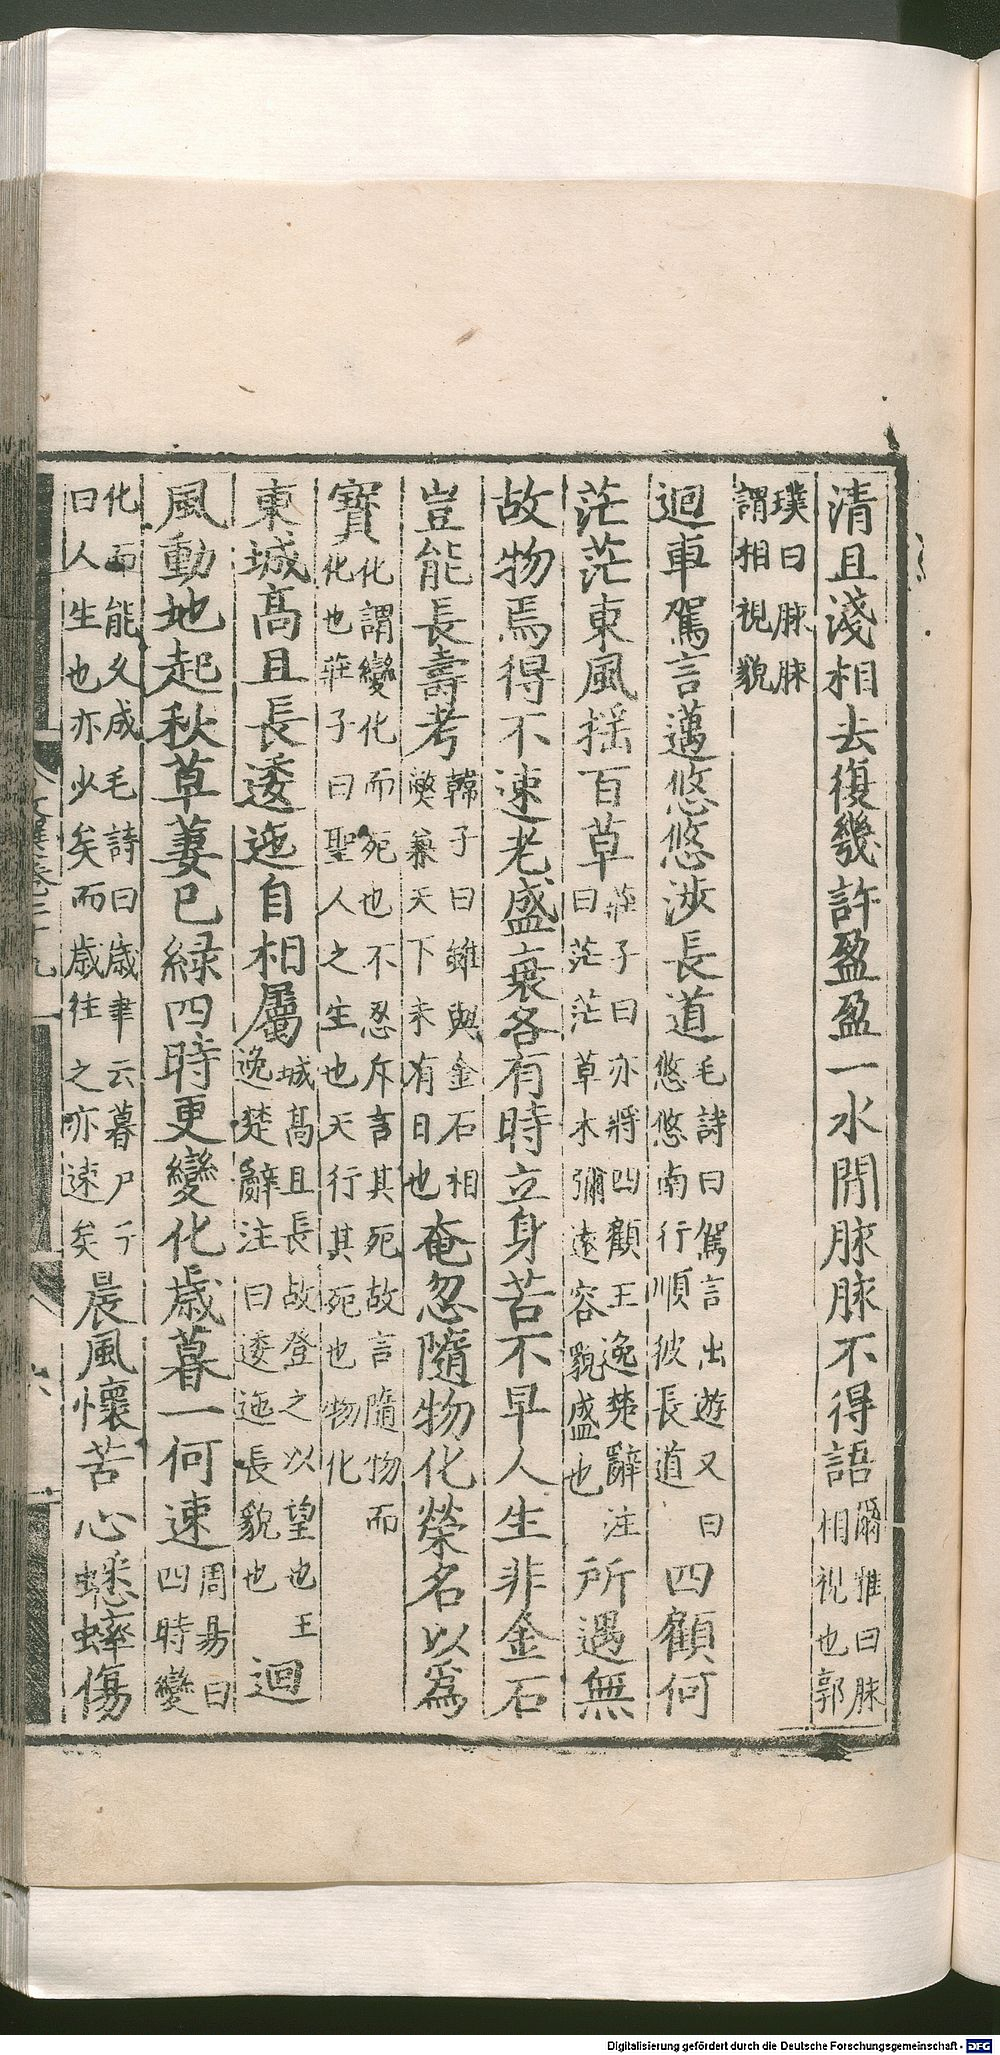 清且淺相去復幾許盈盈一水間脉脉不得語爾雅曰脉相視也郭
璞曰脉脉謂相視貌
迴車駕言邁悠悠涉長道毛詩曰駕言出遊又曰悠悠南行順彼長道四顧何
茫茫東風揺百草莊子曰亦將四顧王逸楚辭注曰茫茫草木彌遠容貌盛也所遇無
故物焉得不速老盛衰各有時立身苦不早人生非金石
豈能長壽考韓子曰雖與金石相獘兼天下未有日也奄忽隨物化榮名以爲
寳化謂變化而死也不忍斥言其死故言隨物而化也莊子曰聖人之生也天行其死也物化
東城髙且長逶迤自相屬城髙且長故登之以望也王逸楚辭注曰逶迤長貌也迴
風動地起秋草萋已緑四時更變化歳暮一何速周易曰四時變
化而能久成毛詩曰歳聿云暮尸子曰人生也亦少矣而歳往之亦速矣晨風懷苦心蟋蟀傷
文選卷二十九
六
Digitalisierung gefördert durch die Deutsche Forschungsgemeinschaft - DFG